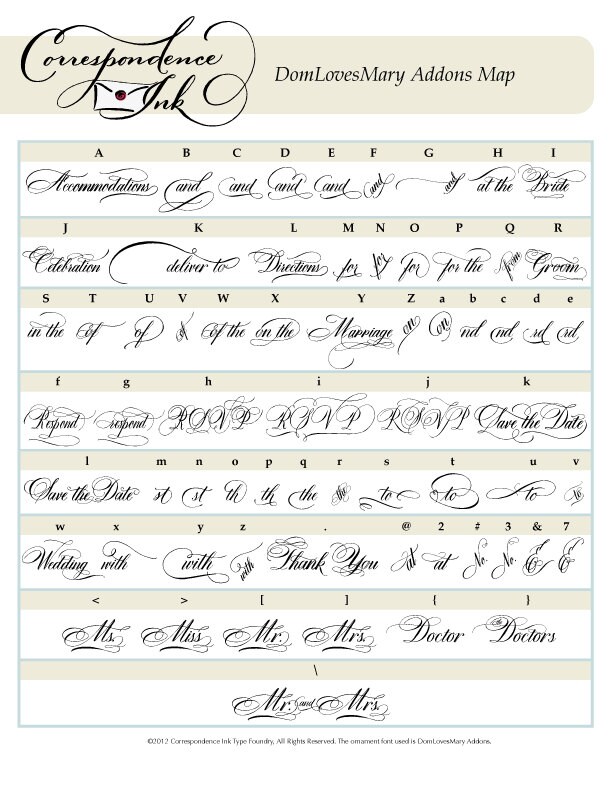 Correspondence
Ink
DomLovesMary Addons Map
A B C D E F G H I
Accommodations and and and and and and at the Bride
J K L M N O P Q R
Celebration deliver to Directions for for for for the from Groom
S T U V W X Y Z a b c d e
in the of of of of the on the Marriage on on nd nd rd rd
f g h i j k
Respond respond RSVP RSVP RSVP Save the Date
l m n o p q r s t u v
Save the Date st st th th the the to to to to
w x y z . @ 2 # 3 & 7
Wedding with with with Thank You at at No. No. & &
< > [ ] { }
Ms. Miss Mr. Mrs. Doctor The Doctors
\
Mr. and Mrs.
©2012 Correspondence Ink Type Foundry, All Rights Reserved. The ornament font used is DomLovesMary Addons.